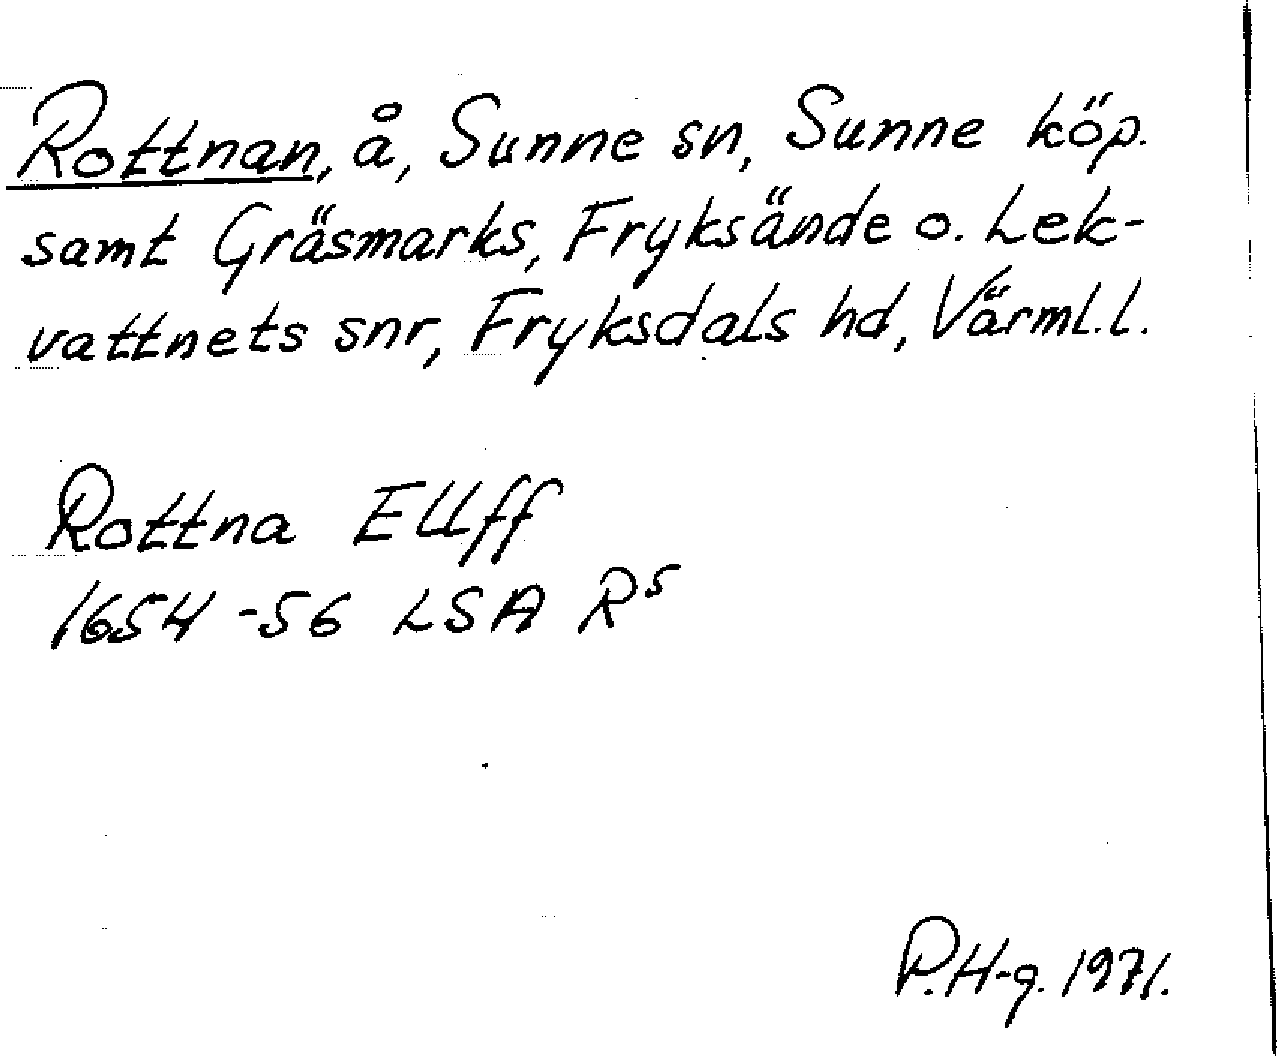 Rottnan, å, Sunne sn, Sunne köp.
samt Gräsmarks, Fryksände o. Lek-
vattnets snr, Fryksdals hd, Värml.l.
Rottna Ellff
1654-56 LSA R⁵
P.H-g. 1971.